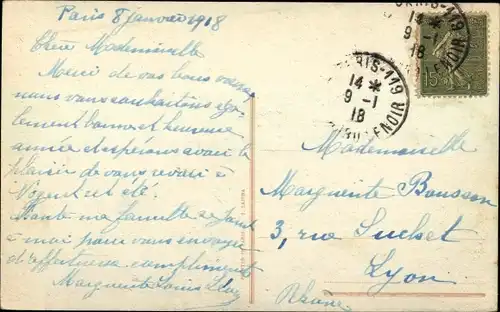 Paris 8 Janvier 1918
Chère Mademoiselle
Merci de vos bons vœux,
nous vous souhaitons éga-
lement bonne et heureuse
année et espérons avoir le
plaisir de vous revoir à
cet été.
Toute ma famille se joint
à moi pour vous envoyer
d'affectueux compliments
Marguerite Louise
PARIS-119
14 *
9 -1
18
NOIR
PARIS-119
14 *
9 -1
18
NOIR
15
Mademoiselle
Marguerite
3, rue Suchet
Lyon
Rhône